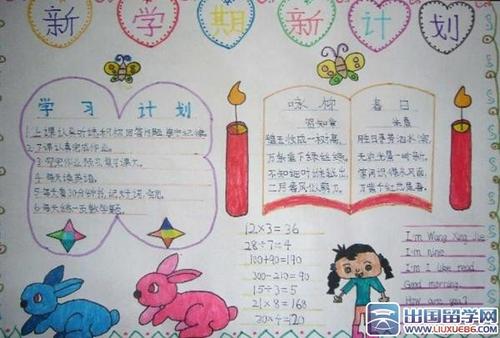 新学期新计划
学习计划
1.上课认真听讲积极回答问题遵守纪律
2.了课认真完成作业。
4.每天读英语。
6.每天练一页数学题。
咏柳
贺知章
碧玉妆成一树高,
万条垂下绿丝绦。
不知细叶谁裁出,
二月春风似剪刀。
春日
朱熹
胜日寻芳泗水滨,
无边光景一时新。
等闲识得春风面,
万紫千红总是春。
12×3=36
28÷7=4
100+90=190
300-210=90
15÷3=5
21×8=168
30×4=120
I'm Wang Xing Jie
I'm nine.
I'm I like read.
Good morning.
How are you?
出国留学网
www.liuxue86.com